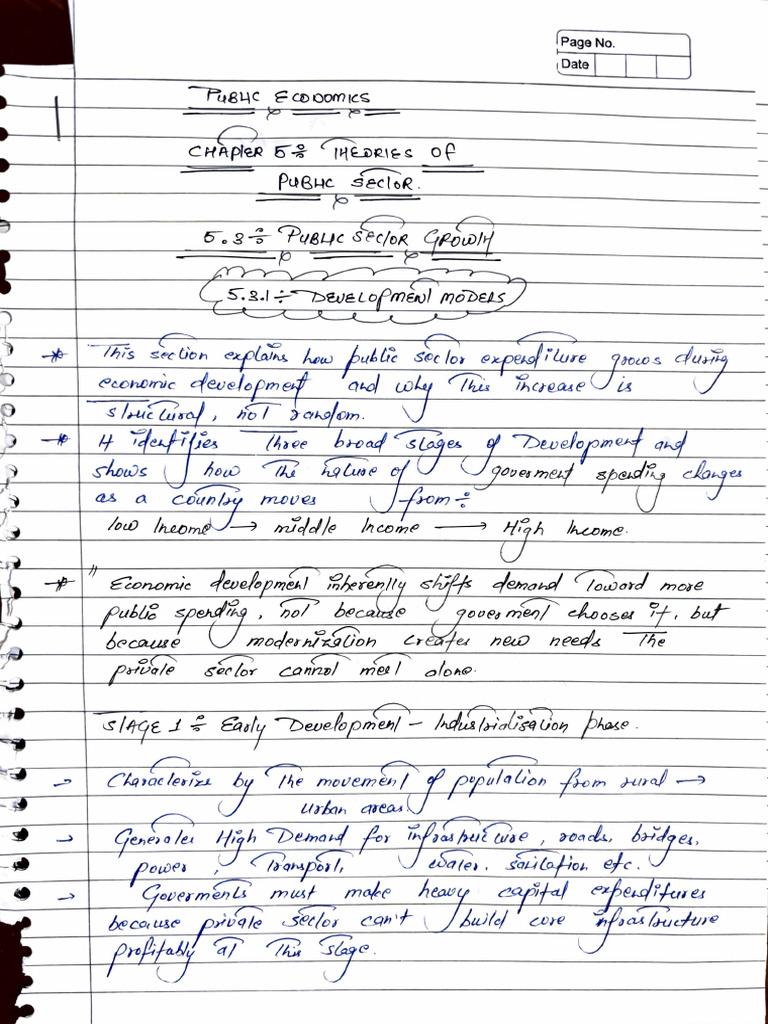 Page No.
Date
1
PUBLIC ECONOMICS
CHAPTER 5÷ THEORIES OF
PUBLIC SECTOR.
5.3÷ PUBLIC SECTOR GROWTH
5.3.1÷ DEVELOPMENT MODELS
* This section explains how public sector expenditure grows during
economic development and why This increase is
structural, not random.
* It identifies Three broad stages of Development and
shows how The nature of goverment spending changes
as a country moves from÷
low Income → middle Income → High Income.
* " Economic development inherently shifts demand Toward more
public spending, not because goverment chooses it, but
because modernization creates new needs The
private sector cannot meet alone.
STAGE 1÷ Early Development - Industrialisation phase.
→ Characterize by The movement of population from rural →
urban areas.
→ Generates High Demand for infrastructure, roads, bridges,
power, Transport, water, sanitation etc.
→ Goverments must make heavy capital expenditures
because private sector can't build core infrastructure
profitably at This stage.